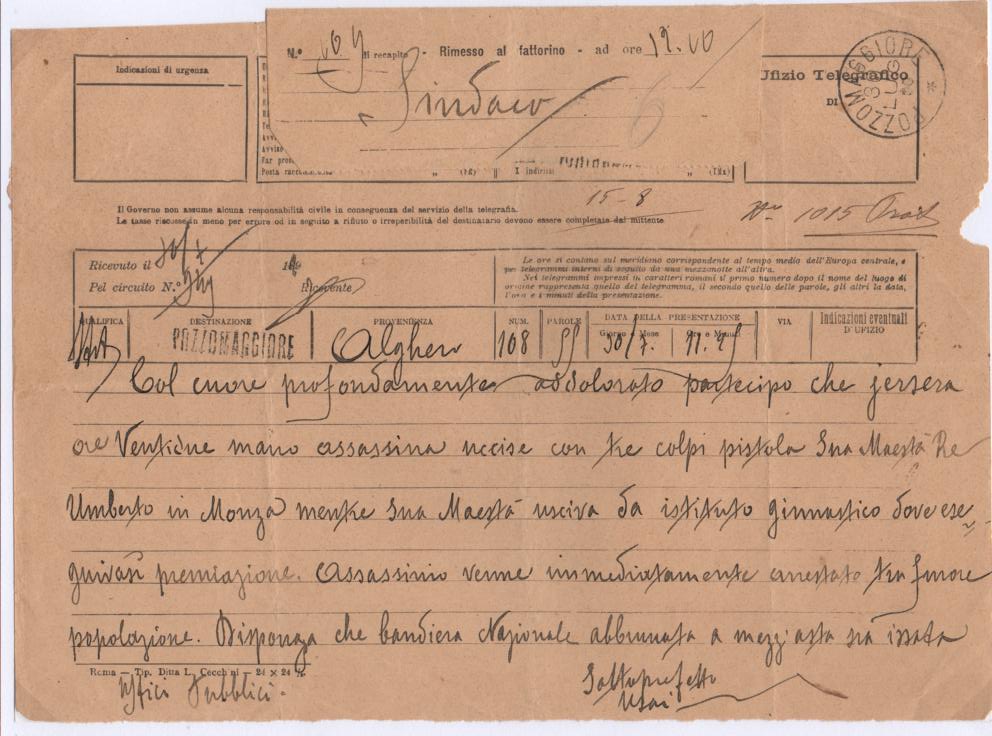 N.º 109 di recapito - Rimesso al fattorino - ad ore 12.00
Sindaco
Indicazioni di urgenza
Ufizio Telegrafico
DI
POZZOMAGGIORE
30 LUG 00
I indirizzi
15-8
Nº 1015 Prot
Il Governo non assume alcuna responsabilità civile in conseguenza del servizio della telegrafia.
Le tasse riscosse in meno per errore od in seguito a rifiuto o irreperibilità del destinatario devono essere completate dal mittente.
Ricevuto il 30/7 19
Pel circuito N.º
Ricevente
Le ore si contano sul meridiano corrispondente al tempo medio dell'Europa centrale, e
pei telegrammi interni di seguito da una mezzanotte all'altra.
Nei telegrammi impressi in caratteri romani il primo numero dopo il nome del luogo di
origine rappresenta quello del telegramma, il secondo quello delle parole, gli altri la data,
l'ora e i minuti della presentazione.
QUALIFICA DESTINAZIONE PROVENIENZA NUM. PAROLE DATA DELLA PRESENTAZIONE VIA Indicazioni eventuali
Giorno e Mese Ore e Minuti D'UFIZIO
POZZOMAGGIORE Alghero 108 30/7.
Col cuore profondamente addolorato partecipo che jersera
ore Ventidue mano assassina uccise con tre colpi pistola Sua Maestà Re
Umberto in Monza mentre Sua Maestà usciva da istituto ginnastico dove ese-
guivasi premiazione. Assassinio venne immediatamente arrestato tra furore
popolazione. Disponga che bandiera Nazionale abbrunata a mezz'asta sia issata
Roma — Tip. Ditta L. Cecchini — 24 × 24
Uffici Pubblici.
Sottoprefetto
Usai